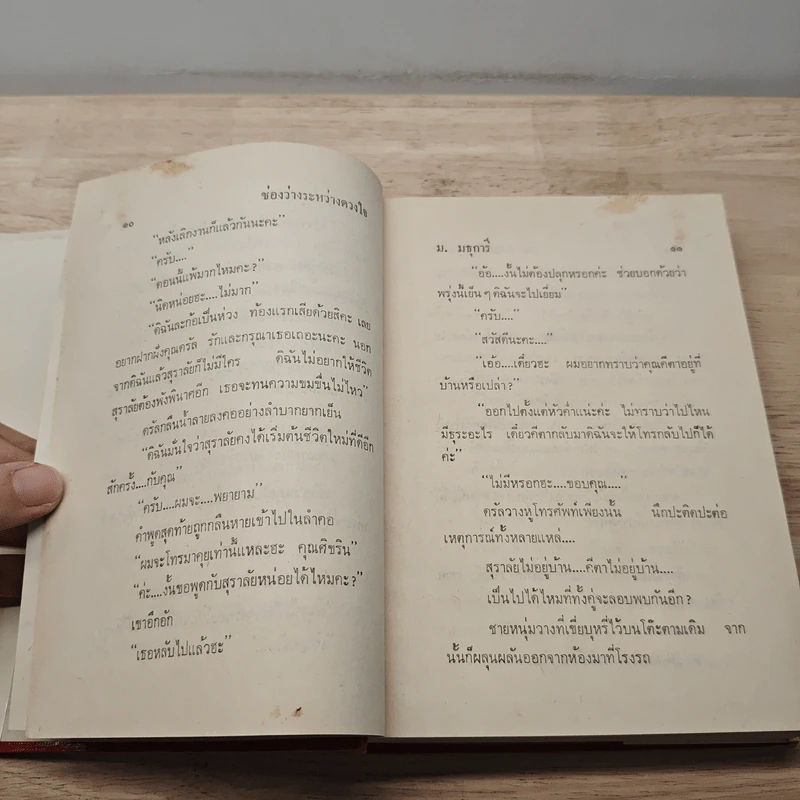 ๑๐
ช่องว่างระหว่างดวงใจ
“หลังเลิกงานก็แล้วกันนะคะ”
“ครับ....”
“ตอนนี้แพ้มากไหมคะ?”
“นิดหน่อยฮะ....ไม่มาก”
“ดิฉันละก้อเป็นห่วง ท้องแรกเสียด้วยสิคะ เลย
อยากฝากฝังคุณดรัล รักและกรุณาเธอเถอะนะคะ นอก
จากดิฉันแล้วสุราลัยก็ไม่มีใคร ดิฉันไม่อยากให้ชีวิต
สุราลัยต้องพังพินาศอีก เธอจะทนความขมขื่นไม่ไหว”
ดรัลกลืนน้ำลายลงคออย่างลำบากยากเย็น
“ดิฉันมั่นใจว่าสุราลัยคงได้เริ่มต้นชีวิตใหม่ที่ดีอีก
สักครั้ง....กับคุณ”
“ครับ....ผมจะ....พยายาม”
คำพูดสุดท้ายถูกกลืนหายเข้าไปในลำคอ
“ผมจะโทรมาคุยเท่านี้แหละฮะ คุณศิขริน”
“ค่ะ....งั้นขอพูดกับสุราลัยหน่อยได้ไหมคะ?”
เขาอึกอัก
“เธอหลับไปแล้วฮะ”
ม. มธุการี
๑๑
“อ้อ....งั้นไม่ต้องปลุกหรอกค่ะ ช่วยบอกด้วยว่า
พรุ่งนี้เย็น ๆ ดิฉันจะไปเยี่ยม”
“ครับ....”
“สวัสดีนะคะ....”
“เอ้อ....เดี๋ยวฮะ ผมอยากทราบว่าคุณคีตาอยู่ที่
บ้านหรือเปล่า?”
“ออกไปตั้งแต่หัวค่ำแน่ะค่ะ ไม่ทราบว่าไปไหน
มีธุระอะไร เดี๋ยวคีตากลับมาดิฉันจะให้โทรกลับไปก็ได้
ค่ะ”
“ไม่มีหรอกฮะ....ขอบคุณ....”
ดรัลวางหูโทรศัพท์เพียงนั้น นึกปะติดปะต่อ
เหตุการณ์ทั้งหลายแหล่....
สุราลัยไม่อยู่บ้าน....คีตาไม่อยู่บ้าน....
เป็นไปได้ไหมที่ทั้งคู่จะลอบพบกันอีก?
ชายหนุ่มวางที่เขี่ยบุหรี่ไว้บนโต๊ะตามเดิม จาก
นั้นก็ผลุนผลันออกจากห้องมาที่โรงรถ